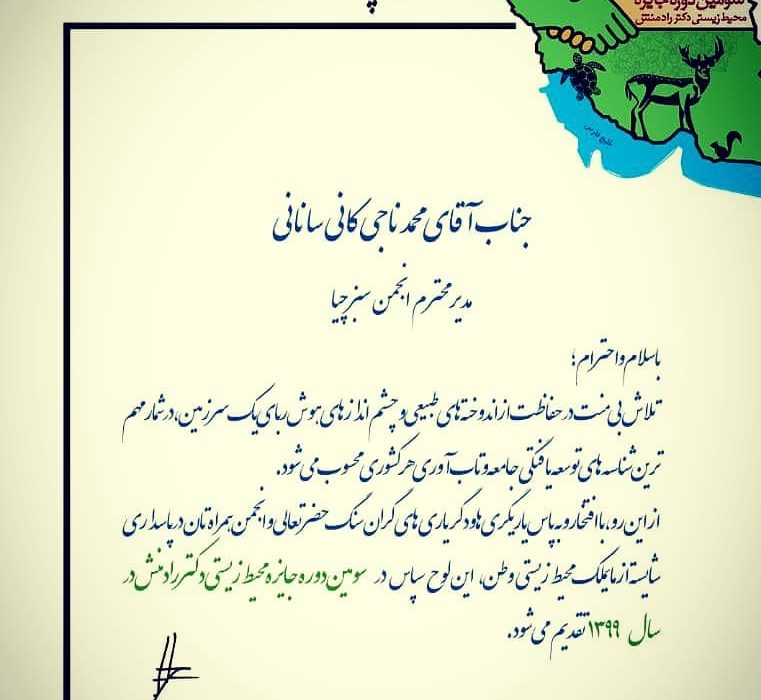 سومین دوره جایزه
محیط زیستی دکتر رادمنش
خلیج فارس
جناب آقای محمد ناجی کانی سانانی
مدیر محترم انجمن سبز چیا
باسلام و احترام؛
تلاش بی منت در حفاظت از اندوخته های طبیعی و چشم اندازهای هوش ربای یک سرزمین، در شمار مهم
ترین شناسه های توسعه یافتگی جامعه و تاب آوری هر کشوری محسوب می شود.
از این رو، با افتخار و به پاس یاریگری ها و دگریاری های گران سنگ حضرتعالی و انجمن همراه تان در پاسداری
شایسته از مایملک محیط زیستی وطن، این لوح سپاس در سومین دوره جایزه محیط زیستی دکتر رادمنش در
سال ۱۳۹۹ تقدیم می شود.